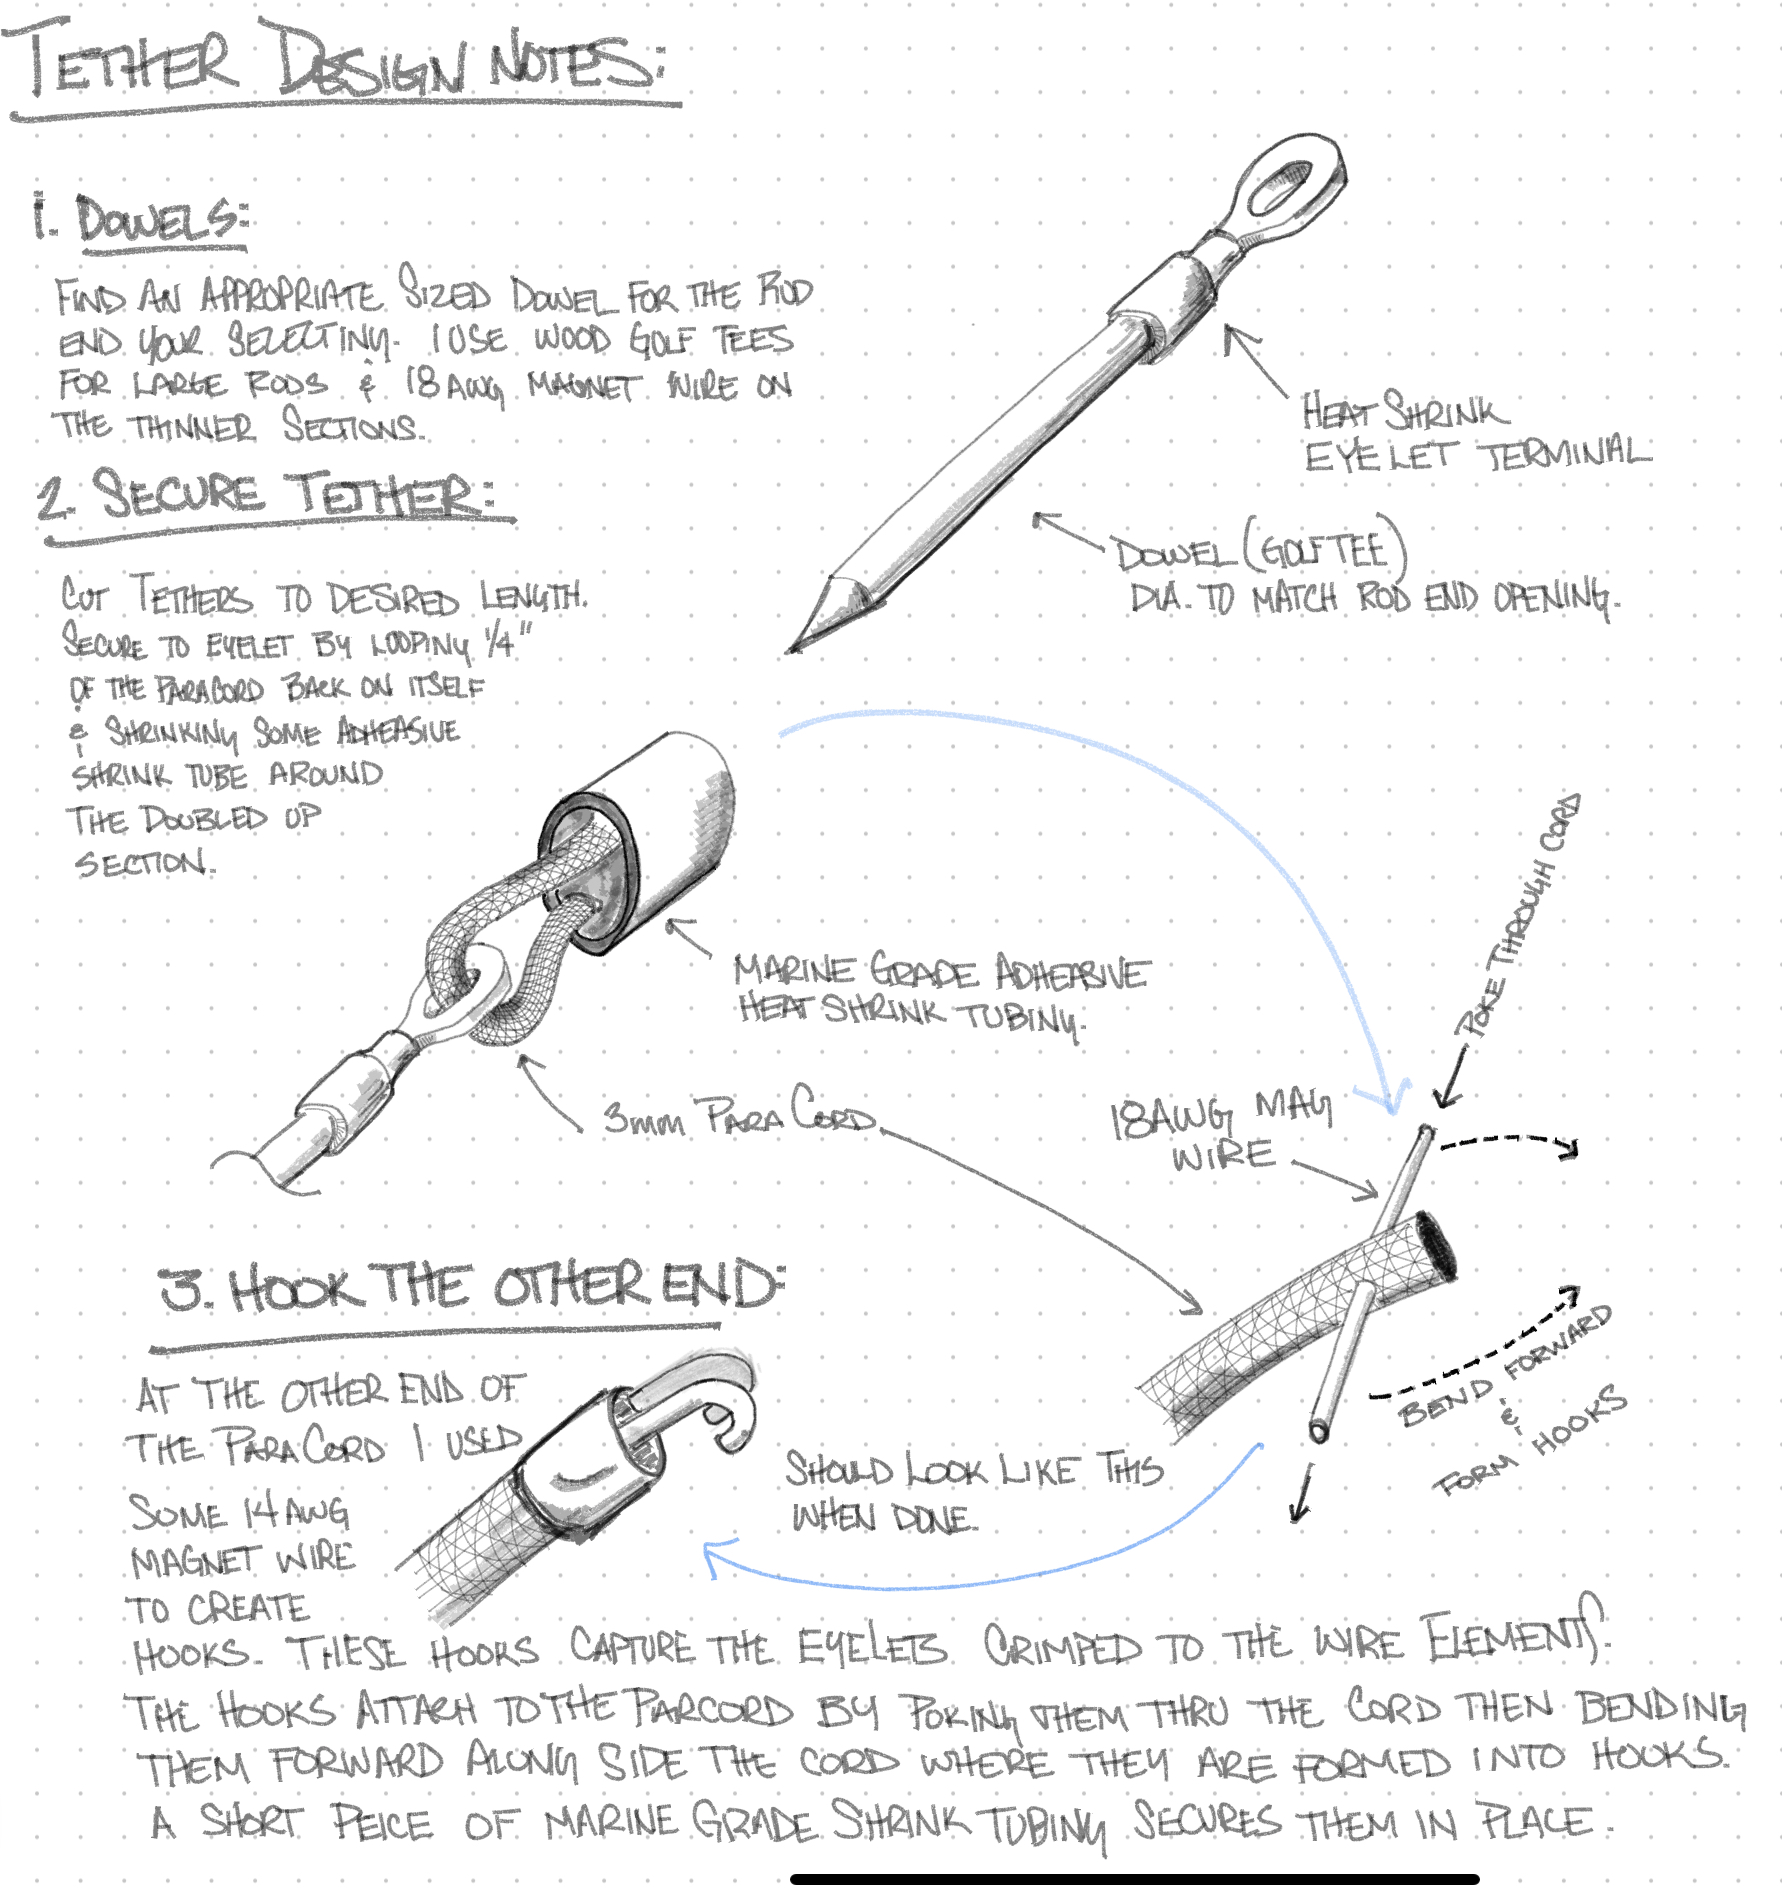 TETHER DESIGN NOTES:
1. DOWELS:
FIND AN APPROPRIATE SIZED DOWEL FOR THE ROD
END YOUR SELECTING. I USE WOOD GOLF TEES
FOR LARGE RODS & 18 AWG MAGNET WIRE ON
THE THINNER SECTIONS.
HEAT SHRINK
EYELET TERMINAL
DOWEL (GOLF TEE)
DIA. TO MATCH ROD END OPENING.
2. SECURE TETHER:
CUT TETHERS TO DESIRED LENGTH.
SECURE TO EYELET BY LOOPING 1/4"
OF THE PARACORD BACK ON ITSELF
& SHRINKING SOME ADHEASIVE
SHRINK TUBE AROUND
THE DOUBLED UP
SECTION.
MARINE GRADE ADHEASIVE
HEAT SHRINK TUBING.
3mm PARA CORD
POKE THROUGH CORD
18AWG MAG
WIRE
BEND FORWARD
&
FORM HOOKS
3. HOOK THE OTHER END:
AT THE OTHER END OF
THE PARACORD I USED
SOME 14 AWG
MAGNET WIRE
TO CREATE
HOOKS. THESE HOOKS CAPTURE THE EYELETS CRIMPED TO THE WIRE ELEMENTS.
THE HOOKS ATTACH TO THE PARCORD BY POKING THEM THRU THE CORD THEN BENDING
THEM FORWARD ALONG SIDE THE CORD WHERE THEY ARE FORMED INTO HOOKS.
A SHORT PEICE OF MARINE GRADE SHRINK TUBING SECURES THEM IN PLACE.
SHOULD LOOK LIKE THIS
WHEN DONE.